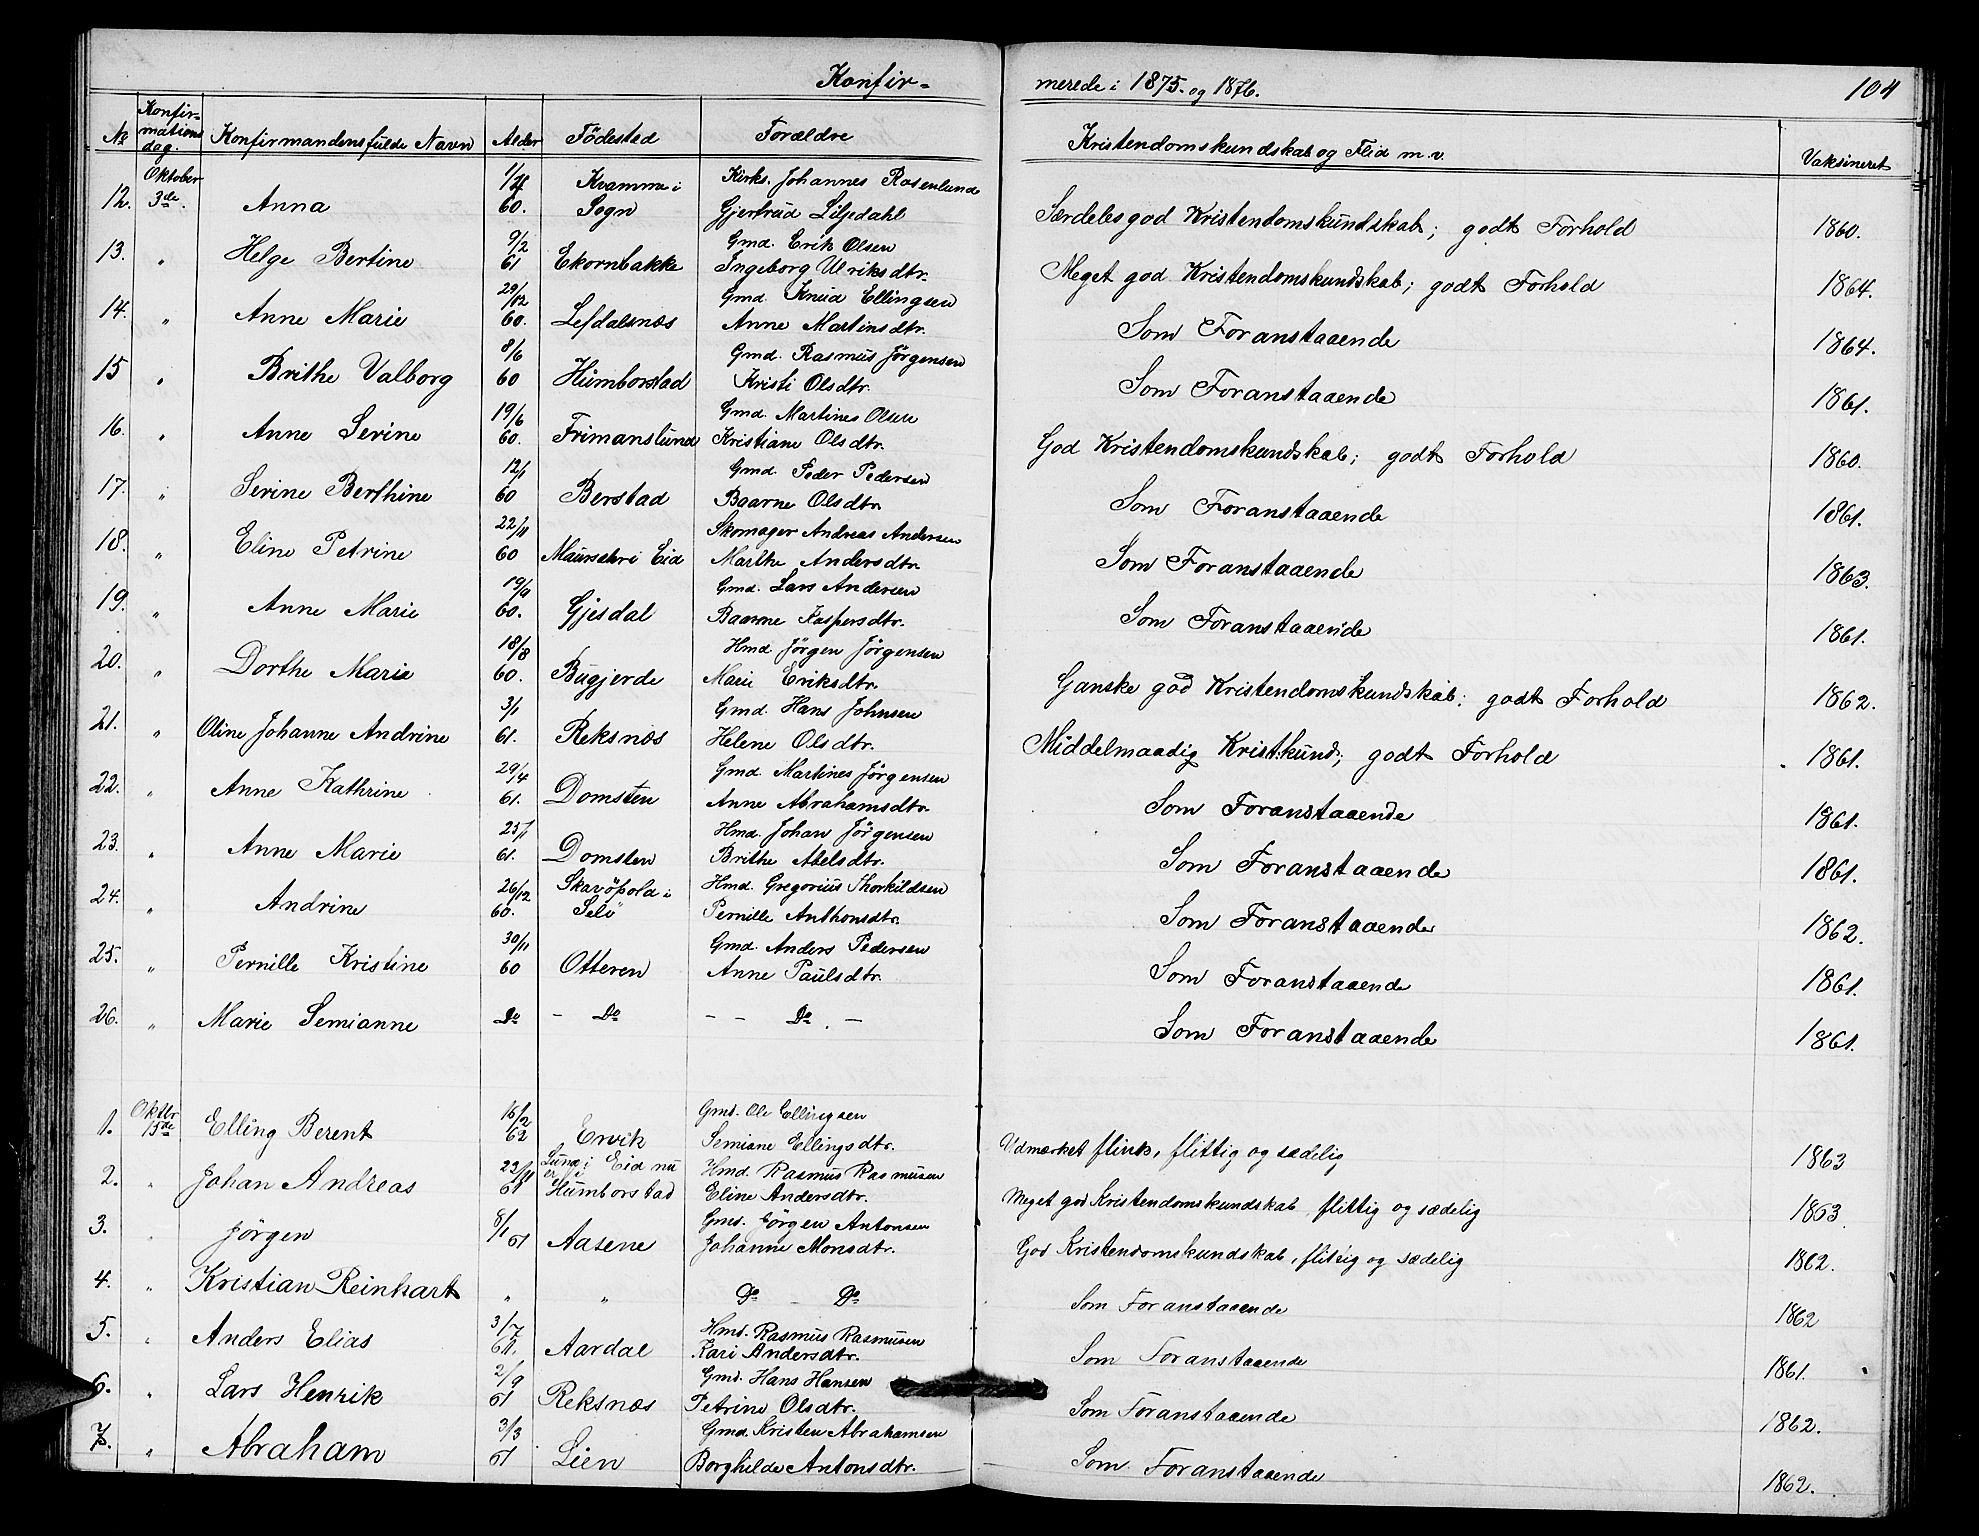 Konfir-
merede i 1875. og 1876.
104
No Konfirmations dag. Konfirmandens fulde Navn Alder Födestad Forældre Kristendomskundskab og Flid m. v. Vaksineret
Oktober Kvamme i Kirks. Johannes Rosenlund
12. 3de. Anna 60. Sogn Gjertrud Liljedahl Særdeles god Kristendomskundskab; godt Forhold 1860.
9/2 Gmd. Erik Olsen
13. " Helge Bertine 61 Ekornbakke Ingeborg Ulriksdtr. Meget god Kristendomskundskab; godt Forhold 1864.
29/12 Gmd. Knud Ellingsen
14. " Anne Marie 60. Lefdalsnæs Anne Martinsdtr. Som Foranstaaende 1864.
8/6 Gmd. Rasmus Jörgensen
15 " Brithe Valborg 60 Humborstad Kristi Olsdtr. Som Foranstaaende 1861.
19/6 Gmd. Martines Olsen
16. " Anne Serine 60. Frimanslund Kristiane Olsdtr. God Kristendomskundskab; godt Forhold 1860.
12/1 Gmd. Peder Pedersen
17. " Serine Berthine 60 Berstad Baarne Olsdtr. Som Foranstaaende 1861.
Skomager Andreas Andersen
18. " Eline Petrine 60 i Eid Marthe Andersdtr. Som Foranstaaende 1863.
19/9 Gmd. Lars Andersen
19. " Anne Marie 60. Gjesdal Baarne Kaspersdtr. Som Foranstaaende 1861.
18/8 Hmd. Jörgen Jörgensen
20. " Dorthe Marie 60. Bugjerde Marie Eriksdtr. Ganske god Kristendomskundskab; godt Forhold 1862.
3/1 Gmd. Hans Johnsen
21. " Oline Johanne Andrine 61. Reksnæs Helene Olsdtr. Middelmaadig Krist.kund.; godt Forhold 1861.
29/4 Gmd. Martines Jörgensen
22. " Anne Kathrine 61. Domsten Anne Abrahamsdtr. Som Foranstaaende 1861.
Hmd. Johan Jörgensen
23. " Anne Marie 61. Domsten Brithe Abelsdtr. Som Foranstaaende 1861.
26/12 i Hmd. Gregorius Thorkildsen
24. " Andrine 60. Selö Pernille Anthonsdtr. Som Foranstaaende 1862.
30/11 Gmd. Anders Pedersen
25. " Pernille Kristine 60 Otteren Anne Paulsdtr. Som Foranstaaende 1861.
26. " Marie Semianne Do - Do - - Do. - Som Foranstaaende 1861.
Oktbr 16/2 Gmd. Ole Ellingsen
1. 15de Elling Berent 62 Ervik Semiane Ellingsdtr. Udmærket flink, flittig og sædelig 1863
23/11 Lund i Eid nu Hmd. Rasmus Rasmusen
2. " Johan Andreas 61 Humborstad Eline Andersdtr. Meget god Kristendomskundskab, flittig og sædelig 1863.
Gmd. Jörgen Antonsen
3. " Jörgen 8/1 61 Aasene Johanne Monsdtr. God Kristendomskundskab, flittig og sædelig 1862.
4. " Kristian Reinhart " " Do - Do Som Foranstaaende 1862
3/7 Hmd. Rasmus Rasmusen
5. " Anders Elias 61. Aardal Kari Andersdtr. Som Foranstaaende 1861.
2/9 Gmd. Hans Hansen
6. " Lars Henrik 61 Reksnæs Petrine Olsdtr. Som Foranstaaende 1862.
3/3 Gmd. Kristen Abrahamsen
7. " Abraham 61 Lien Borghilde Antonsdtr. Som Foranstaaende 1862.